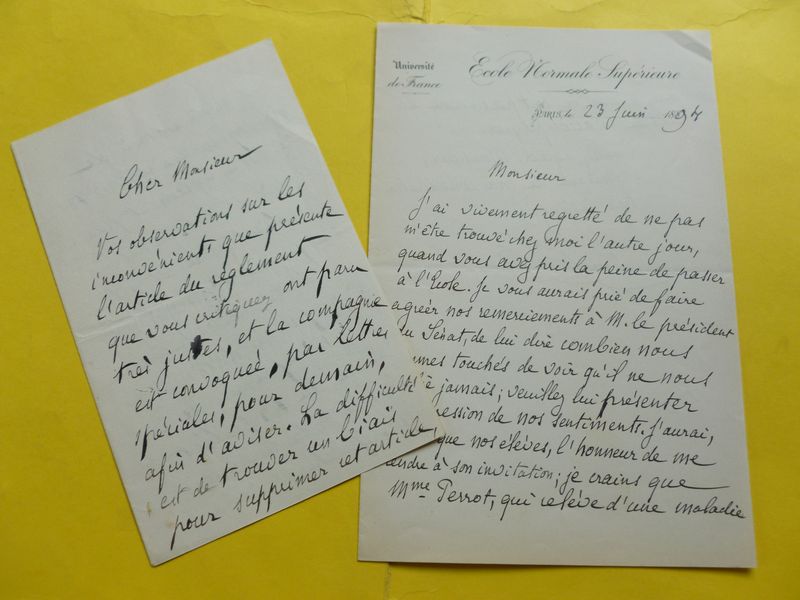 Cher Monsieur
Vos observations sur les
inconvénients que présente
l'article du règlement
que vous critiquez ont paru
très justes, et la compagnie
est convoquée, par lettres
spéciales, pour demain,
afin d'aviser. La difficulté
est de trouver un biais
pour supprimer cet article
Université
de France
Ecole Normale Supérieure
PARIS, le 23 Juin 1894
Monsieur
J'ai vivement regretté de ne pas
m'être trouvé chez moi l'autre jour,
quand vous avez pris la peine de passer
à l'Ecole. Je vous aurais prié de faire
agréer nos remerciements à M. le président
du Sénat, de lui dire combien nous
mmes touchés de voir qu'il ne nous
jamais; veuillez lui présenter
ression de nos sentiments. J'aurai,
que nos élèves, l'honneur de me
endre à son invitation; je crains que
Mme Perrot, qui relève d'une maladie